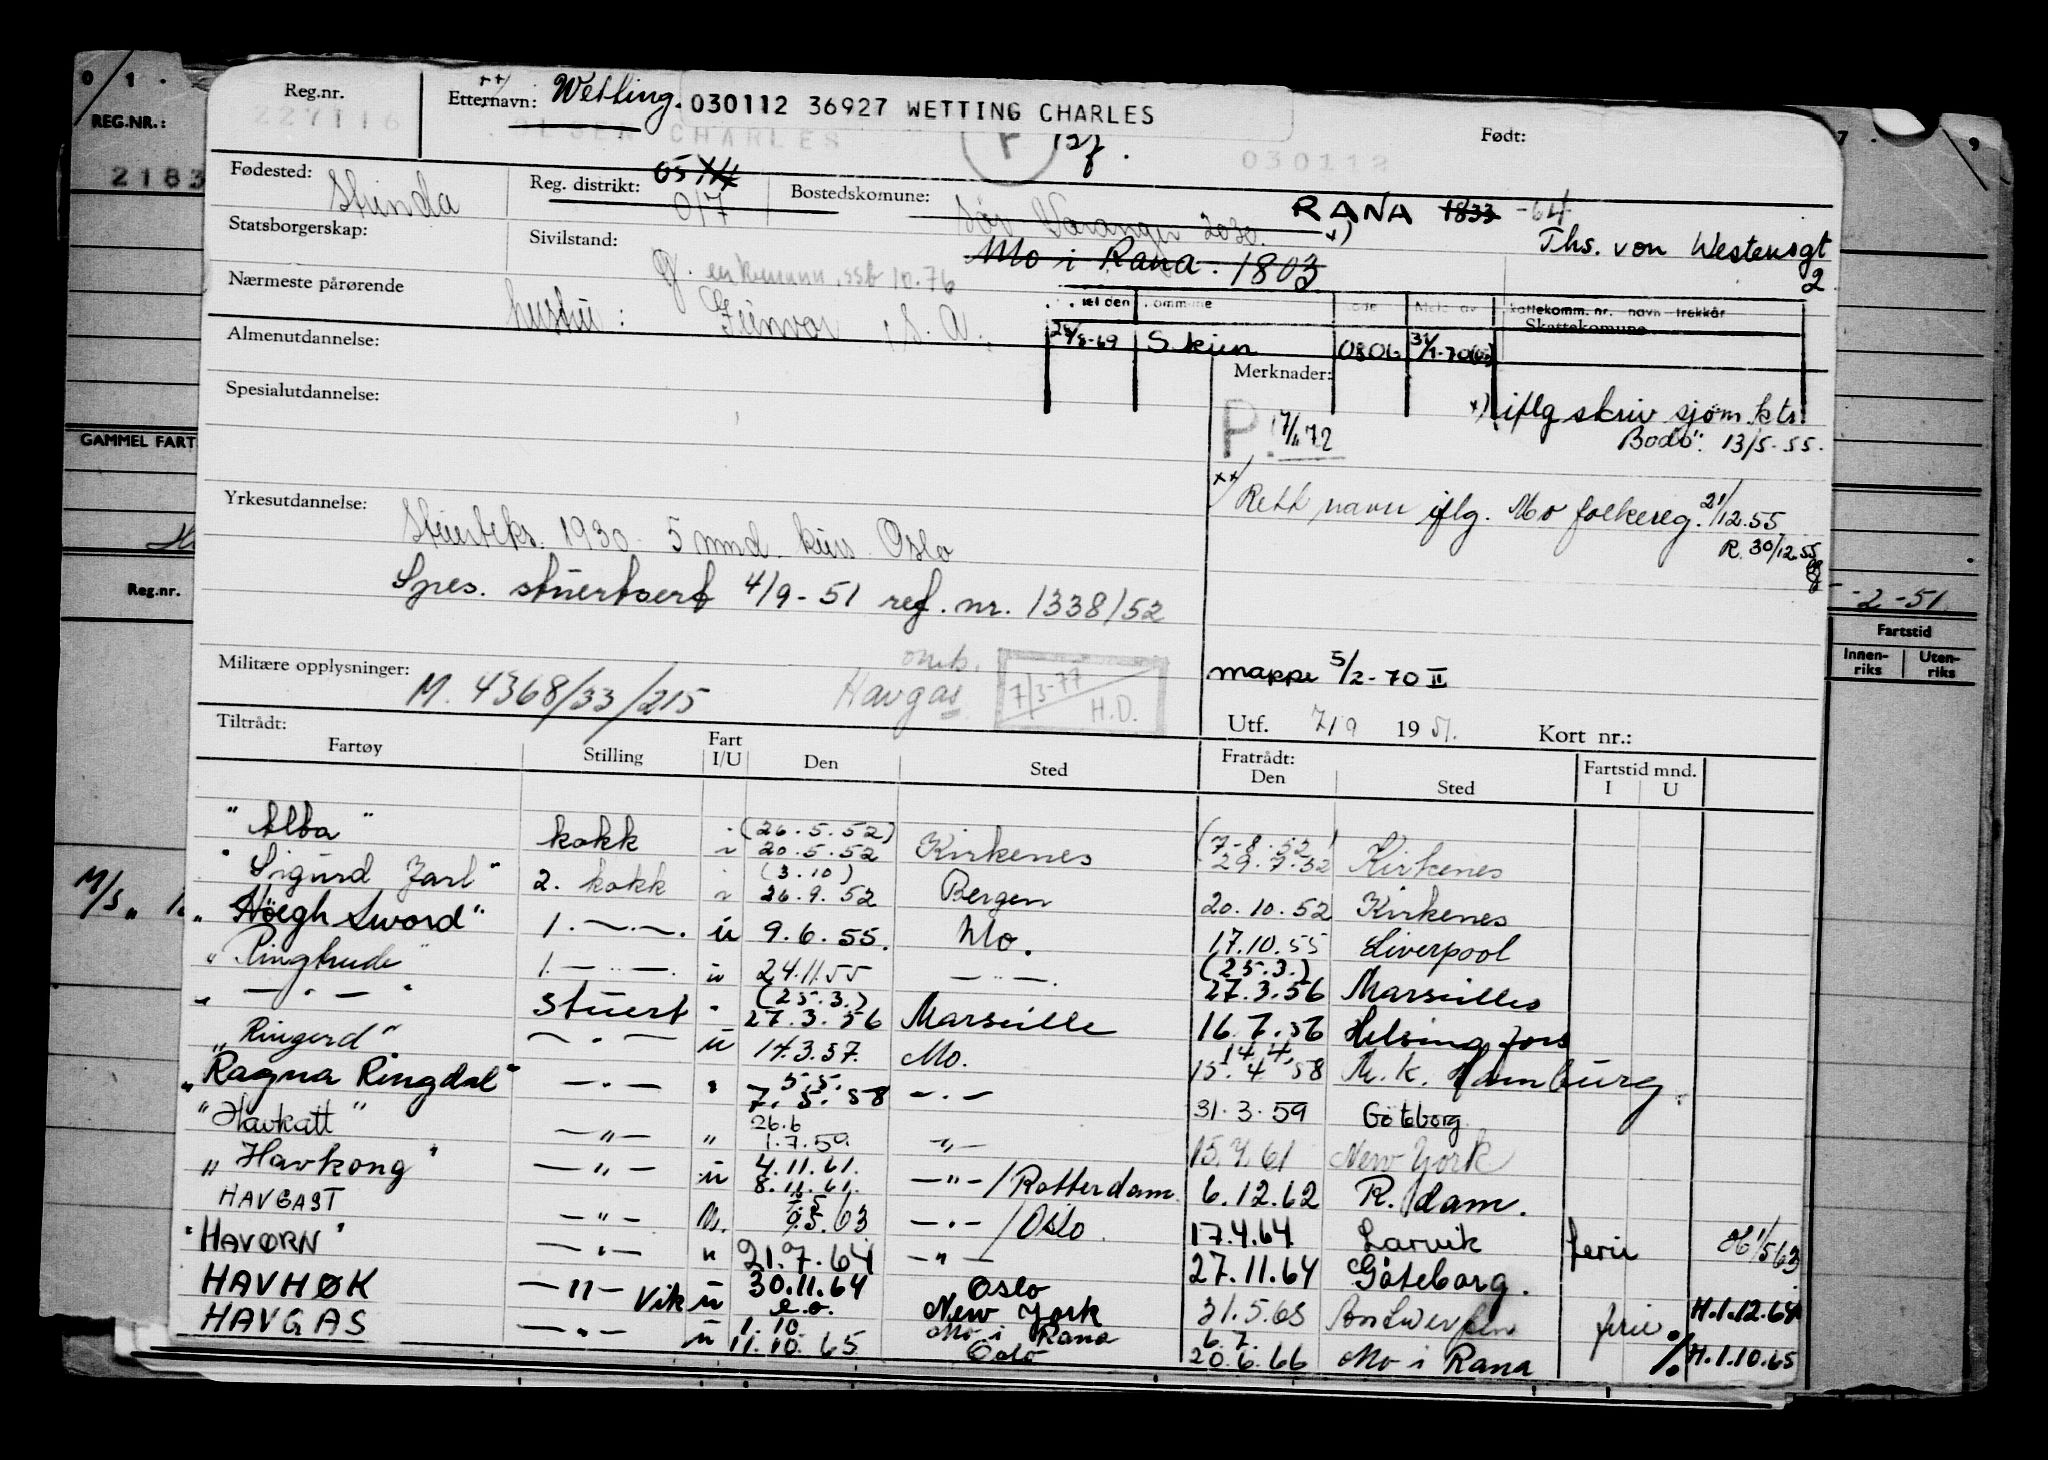 0 / 1 .
REG.NR.:
2183
GAMMEL FART
Reg.nr.
M/S "
Reg.nr.
227116
Etternavn: Wetting. 030112 36927 WETTING CHARLES
OLSEN CHARLES
030112
Født:
Fødested: Strinda
Reg. distrikt: 017
Bostedskomune: Sør Varanger 2030.
RANA 1833 -64
x)
Ths. von Westensgt
2
Mo i Rana. 1803
Statsborgerskap:
Sivilstand: g. enkemann, ssb 10.76
Nærmeste pårørende
hustru: Gunvor, S. A.
Skattekomm. nr. navn trekkår
Skattekomune
Almenutdannelse:
Skien 0806
Merknader:
Spesialutdannelse:
x) iflg skriv sjøm.ktr.
Bodø: 13/5-55.
P. 17/11 72
Yrkesutdannelse:
xx) Rett navn iflg. Mo folkereg. 21/12.55
R. 30/12.55
Stuerteks. 1930 5 mnd. kurs Oslo
Spes. stuertsert 4/9-51 ref. nr. 1338/52
-2-51
Fartstid
Innen-riks Uten-riks
Militære opplysninger: M. 4368/33/215
omb. Havgas
7/3-77 H.D.
mappe 5/2-70 II
Utf. 7/9 1951. Kort nr.:
Tiltrådt:
Fartøy Stilling Fart I/U Den Sted Fratrådt: Den Sted Fartstid mnd. I U
"Alba" kokk i (26.5.52) 20.5.52 Kirkenes (7-8.52) 29.7.52 Kirkenes
"Sigurd Jarl" 2. kokk i (3.10) 26.9.52 Bergen 20.10.52 Kirkenes
"Höegh Sword" 1. —..—. u 9.6.55. Mo. 17.10.55 Liverpool
"Ringhude" 1. —..—. u 24.11.55 —..—. (25.3.) 27.3.56 Marseilles
" — " — " stuert " (25.3.) 27.3.56 Marseille 16.7.56 Helsingfors
"Ringerd" — " — u 14.3.57. Mo. 14.4. 15.4.58 M.k. Hamburg.
"Ragna Ringdal" — " — " 5.5. 7.5.58 — " — 31.3.59 Göteborg
"Havkatt" — " — " 26.6 1.7.59. — " — 15.4.61 New York
"Havkong" — " — u 4.11.61. 8.11.61. — " —/Rotterdam. 6.12.62 R.dam.
HAVGAST — " — u. 9.5.63 — " —/Oslo 17.4.64 Larvik ferie H 1/5 63
"HAVØRN" — " — u 21.7.64 — " — 27.11.64 Göteborg.
HAVHØK — " — Vik u 30.11.64 e.o. Oslo New York 31.5.65 Antwerpen ferie H.1.12.64
HAVGAS — " — u 1.10 11.10.65 Mo i Rana Oslo 6.7. 20.6.66 Mo i Rana % H.1.10.65